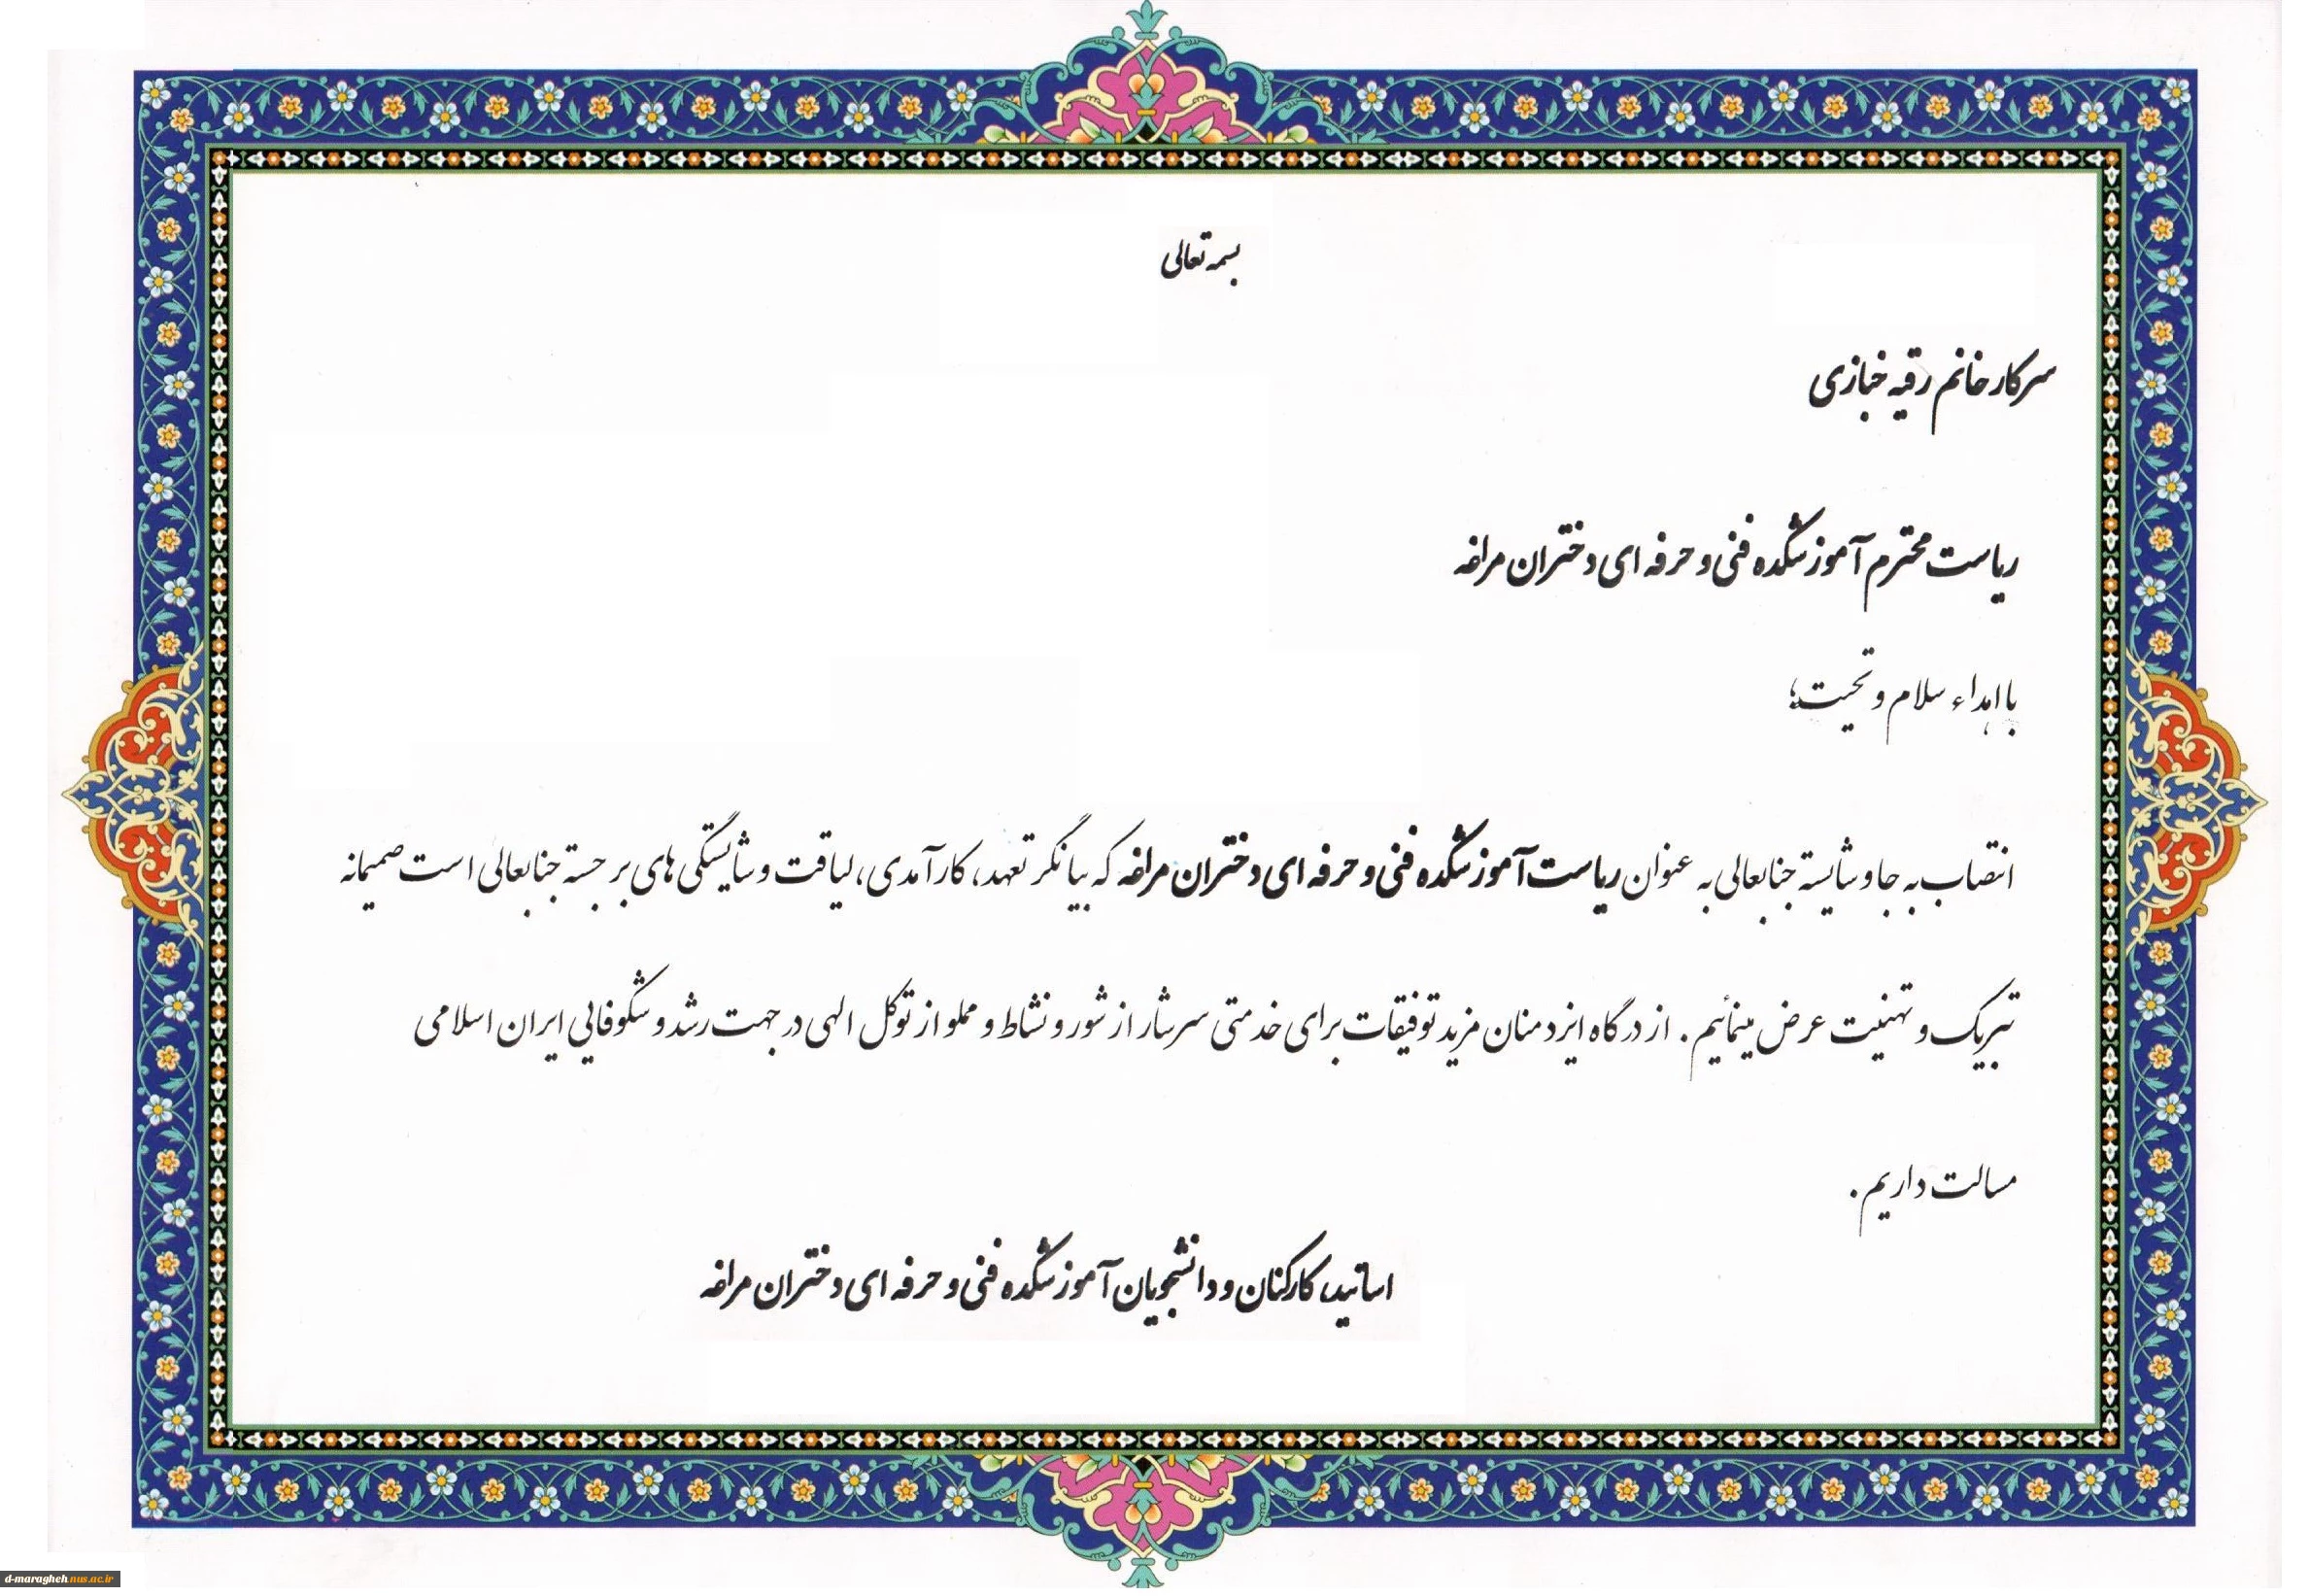 بسمه تعالی
سرکار خانم رقیه خبازی
ریاست محترم آموزشکده فنی و حرفه ای دختران مراغه
با اهداء سلام و تحیت؛
انتصاب به جا و شایسته جنابعالی به عنوان ریاست آموزشکده فنی و حرفه ای دختران مراغه که بیانگر تعهد، کارآمدی، لیاقت و شایستگی های برجسته جنابعالی است صمیمانه
تبریک و تهنیت عرض مینمائیم. از درگاه ایزد منان مزید توفیقات برای خدمتی سرشار از شور و نشاط و مملو از توکل الهی در جهت رشد و شکوفایی ایران اسلامی
مسالت داریم.
اساتید، کارکنان و دانشجویان آموزشکده فنی و حرفه ای دختران مراغه
d-maragheh.nus.ac.ir